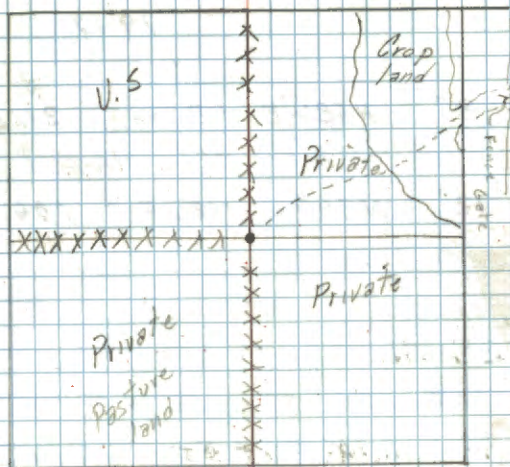 U.S
Crop
land
Private
Gate
Private
Private
Pasture
land